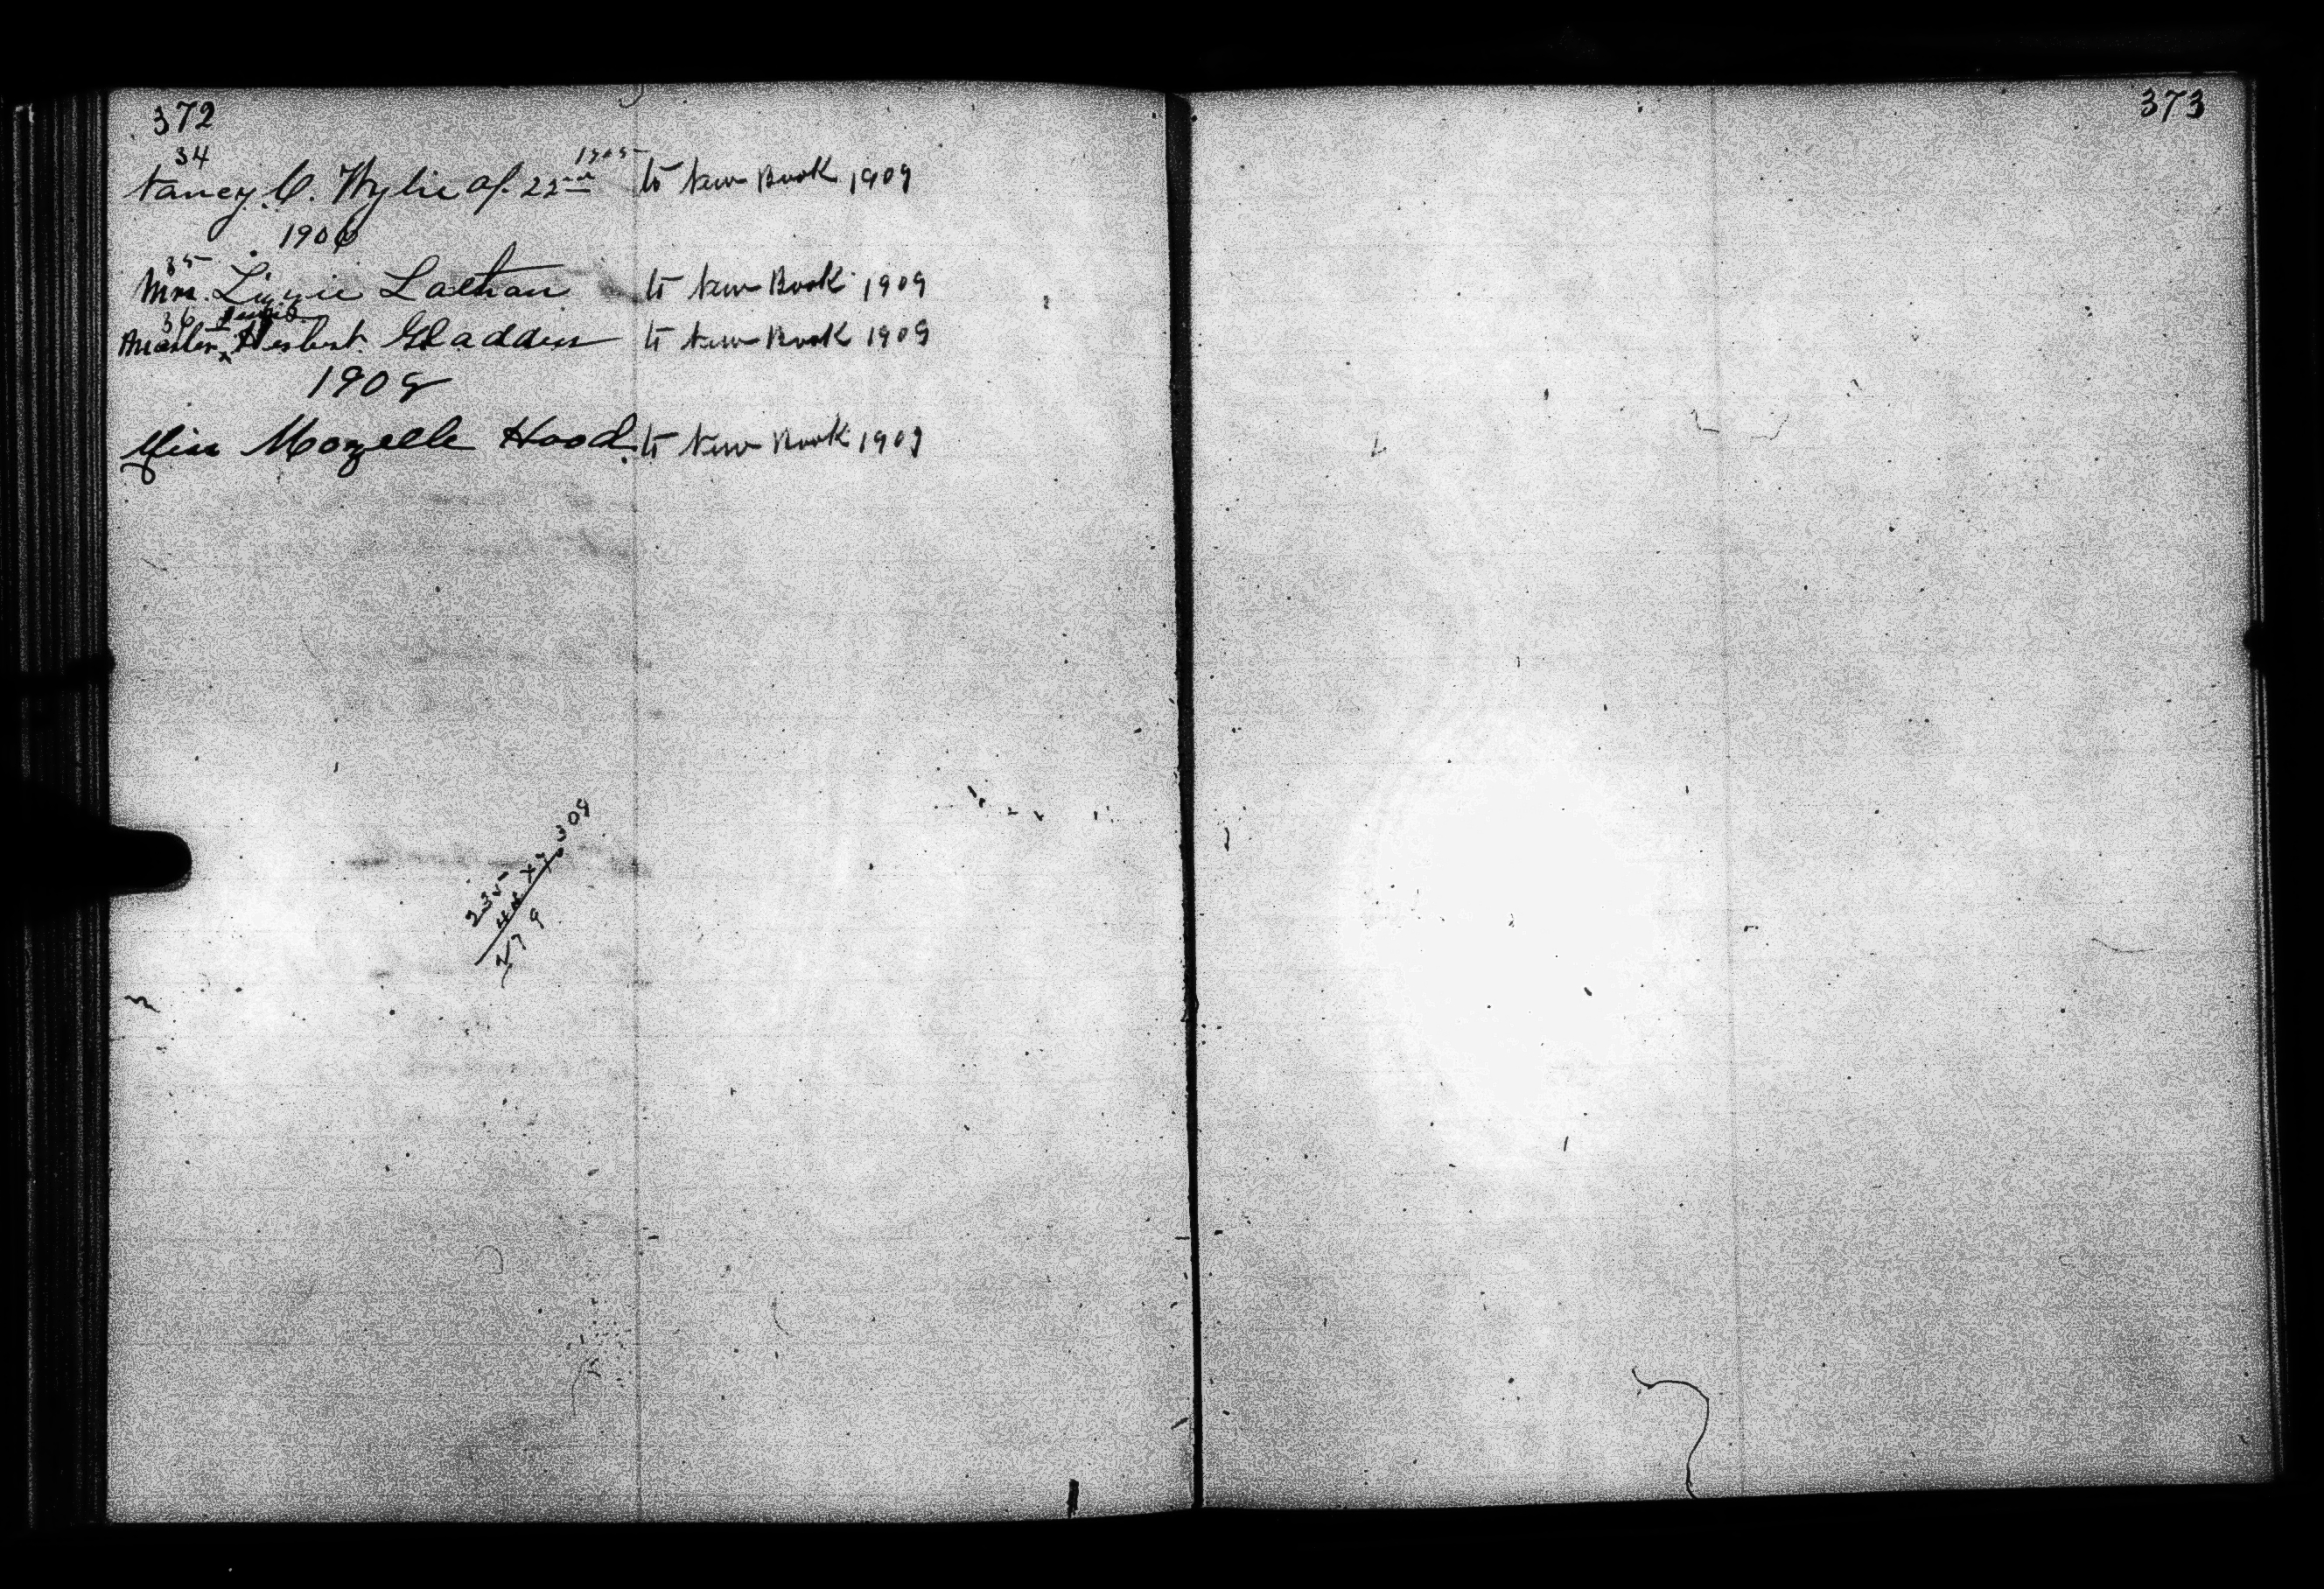 372
34
Nancy C. Wylie Ap. 22nd 1905 to New Book 1909
1906
35
Mrs. Lizzie Lathan to New Book 1909
36
Master Herbert Gladden to New Book 1909
1908
Miss Mozelle Hood. to New Book 1909
309
235
44
279
373